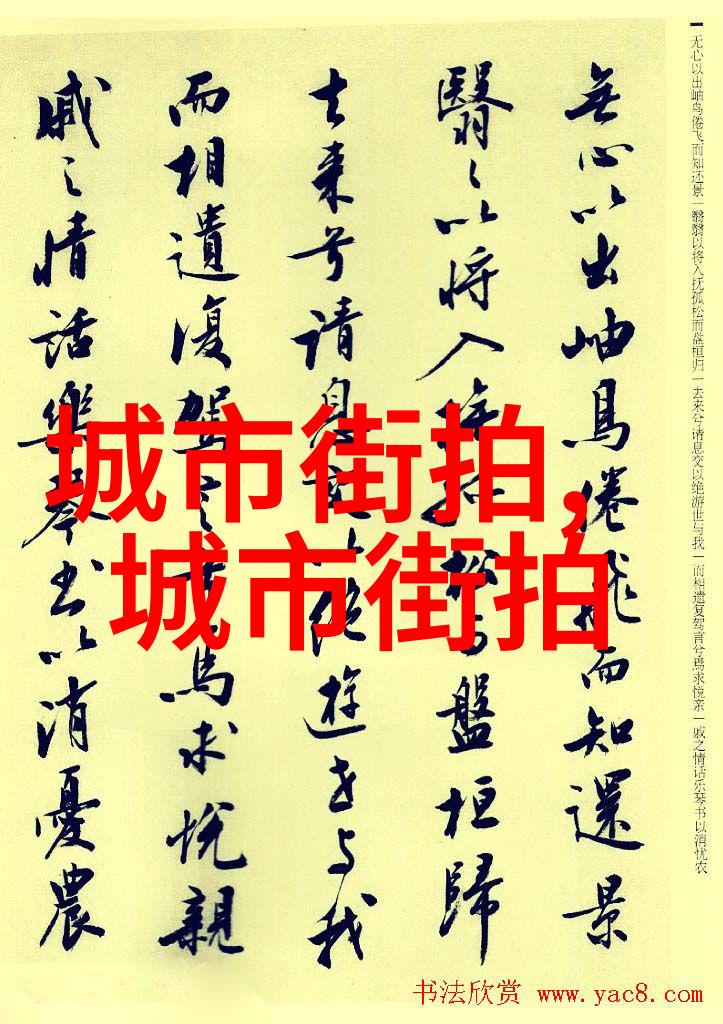 无心以出岫鸟倦飞而知还景|翳翳以将入抚孤松而盘桓归|去来兮请息交以绝游世与我|而相遗复驾言兮焉求悦亲|戚之情话乐琴书以消忧农
無心以出岫鳥倦飛而知還景
翳〻以将入撫孤松而盤桓歸
去来兮請息交以絕遊世与我
而相遺復駕言兮焉求悅親
戚之情話樂琴書以消憂農
城市街拍,
城市街拍
书法欣赏 www.yac8.com